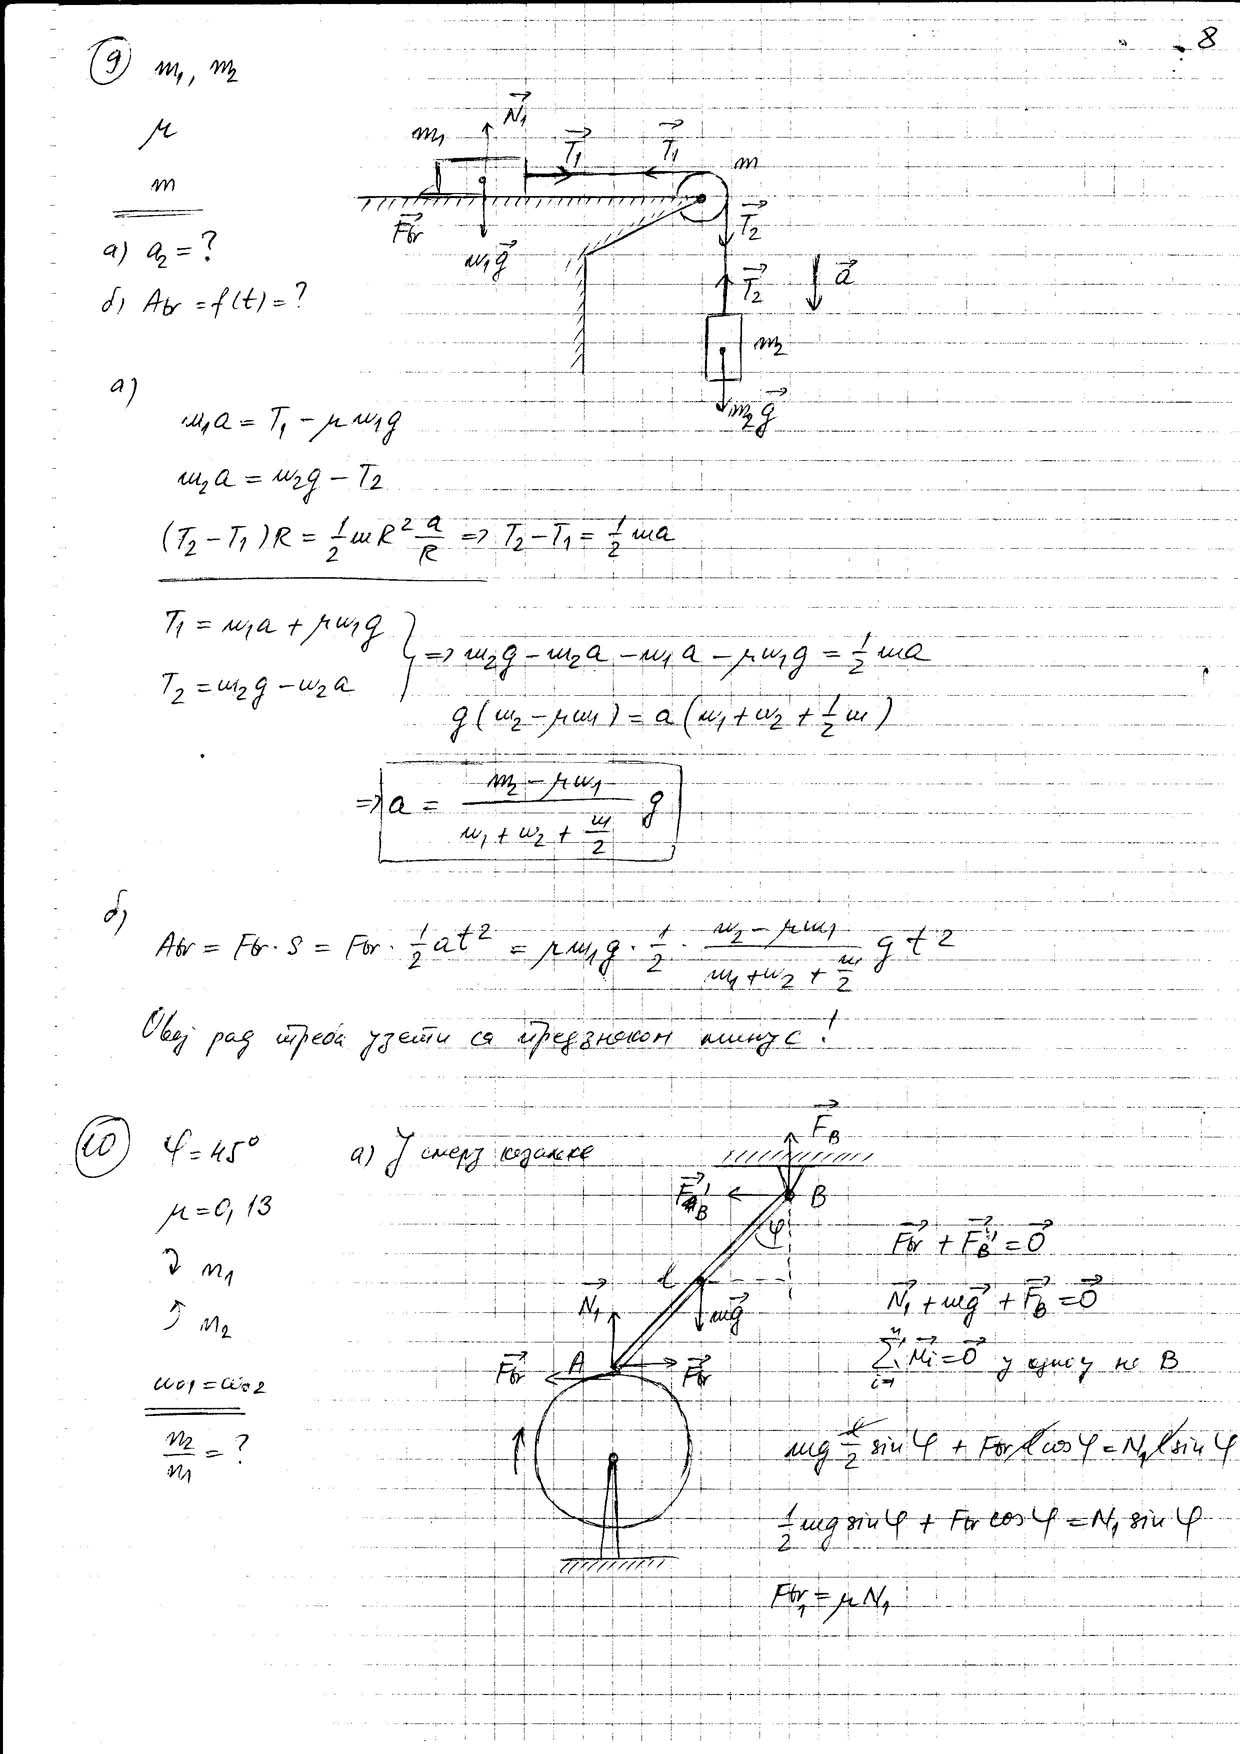 8
⑨ m₁, m₂
μ
m
a) a₂ = ?
б) Atr = f(t) = ?
N₁
m₁
T₁
T₁
m
Ftr
m₁g
T₂
T₂
a
m₂
m₂g
a)
m₁a = T₁ − μm₁g
m₂a = m₂g − T₂
(T₂ − T₁)R = 1/2 mR² a/R ⇒ T₂ − T₁ = 1/2 ma
T₁ = m₁a + μm₁g
T₂ = m₂g − m₂a
} ⇒ m₂g − m₂a − m₁a − μm₁g = 1/2 ma
g(m₂ − μm₁) = a(m₁ + m₂ + 1/2 m)
⇒ a = (m₂ − μm₁)/(m₁ + m₂ + m/2) g
б)
Atr = Ftr · s = Ftr · 1/2 at² = μm₁g · 1/2 · (m₂ − μm₁)/(m₁ + m₂ + m/2) g t²
Овај рад треба узети са предзнаком минус!
⑩ φ = 45°
μ = 0,13
↷ n₁
n₂
ω₀₁ = ω₀₂
n₂/n₁ = ?
а) У смеру казаљке
F_B
F'_B
B
φ
l
mg
N₁
A
Ftr
Ftr
Ftr + F_B' = 0
N₁ + mg + F_B = 0
∑ Mi = 0 у односу на B
i=1
mg l/2 sin φ + Ftr l cos φ = N₁ l sin φ
1/2 mg sin φ + Ftr cos φ = N₁ sin φ
Ftr₁ = μN₁